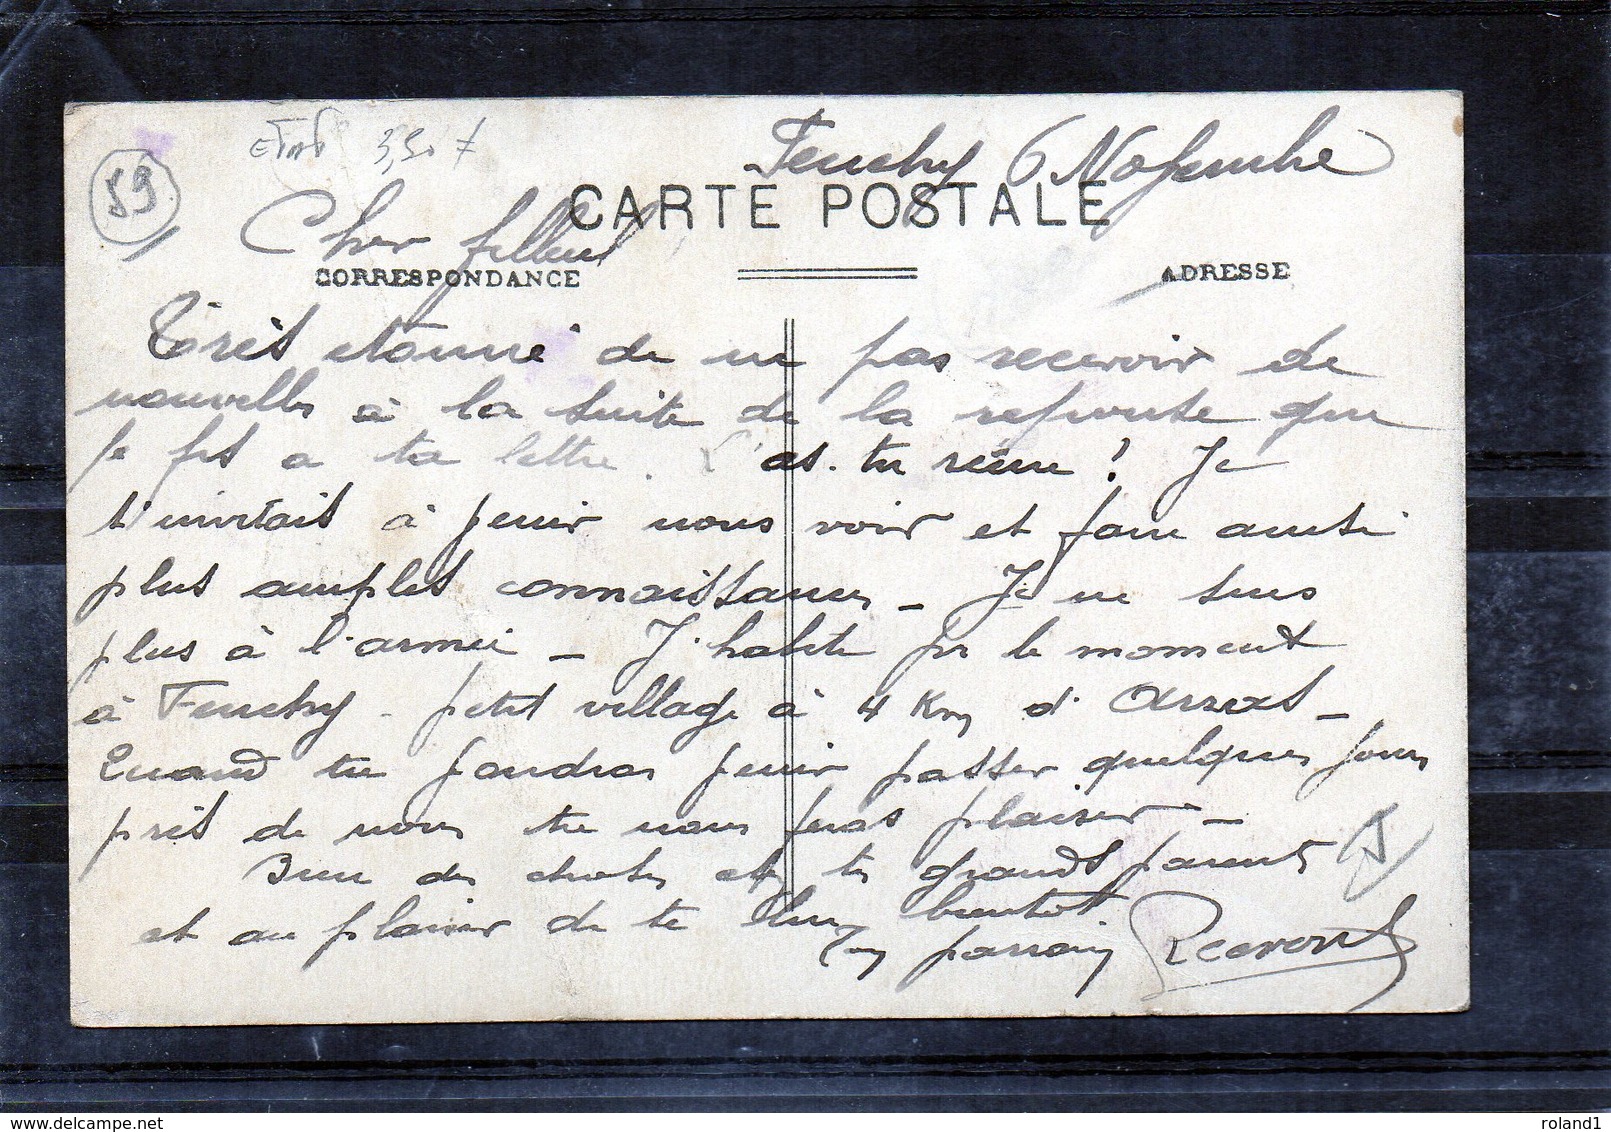 59
3,50 F
Feuchy 6 Novembre
CARTE POSTALE
Cher filleul
CORRESPONDANCE
ADRESSE
Très étonné de ne pas recevoir de
nouvelles à la suite de la reponse que
je fis a ta lettre. L'as-tu reçue ! Je
t'invitais à venir nous voir et faire ainsi
plus amples connaissances - Je ne suis
plus à l'armée - J'habite pr le moment
à Feuchy - petit village à 4 Km d'Arras -
Quand tu voudras venir passer quelques jours
près de nous tu nous feras plaisir -
Bien des choses à tes grands parents
et au plaisir de te lire bientôt.
Ton parrain
delcampe.net
roland1